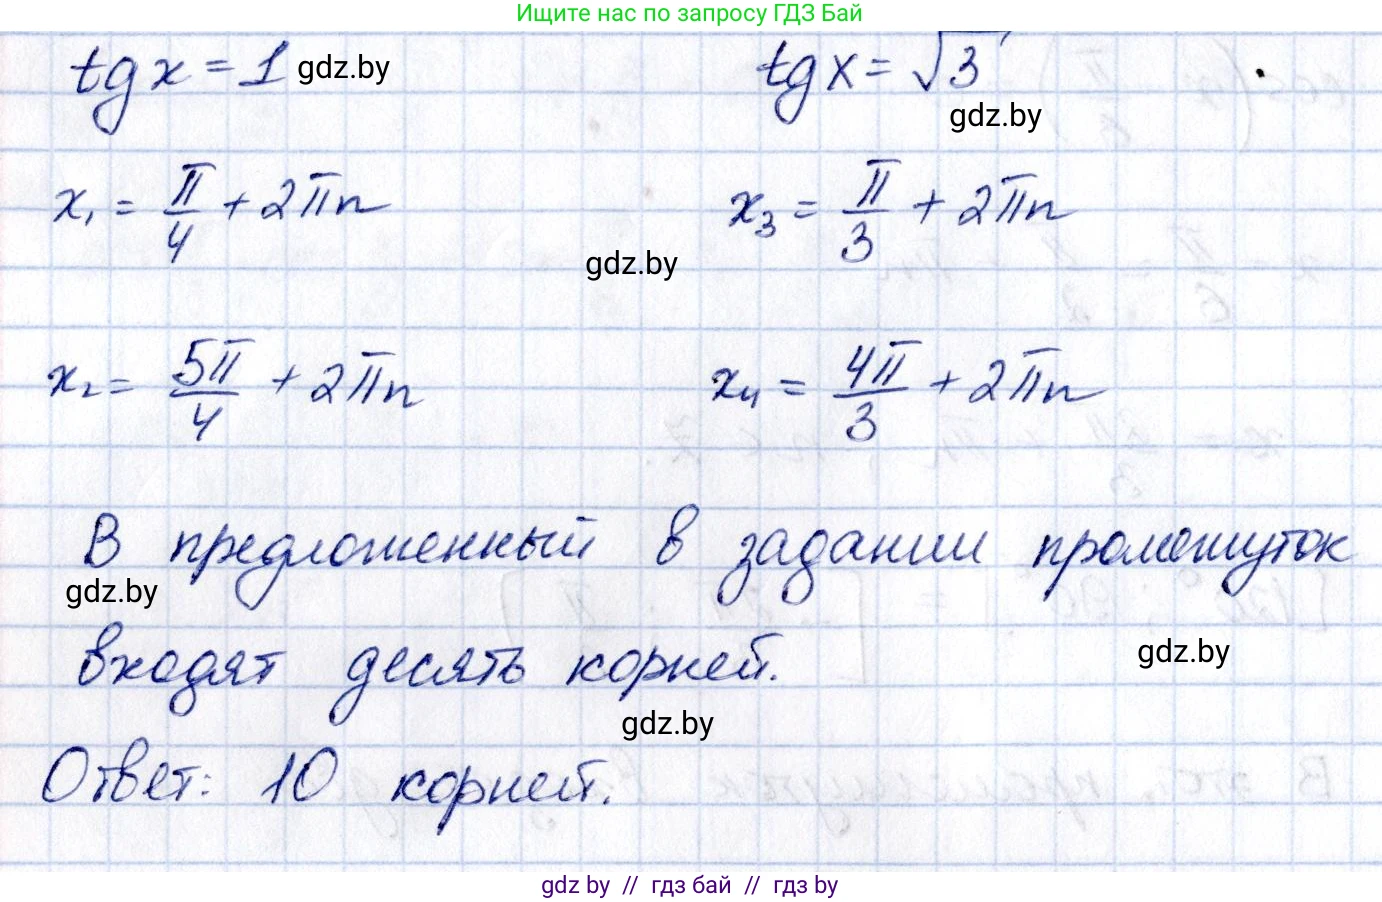 Ищите нас по запросу ГДЗ Бай
tg x = 1 gdz.by
tg x = √3
gdz.by
x₁ = π/4 + 2πn
x₃ = π/3 + 2πn
gdz.by
x₂ = 5π/4 + 2πn
x₄ = 4π/3 + 2πn
В предложенный в задании промежуток
gdz.by
входят десять корней.
gdz.by
gdz.by
Ответ: 10 корней.
gdz by // гдз бай // гдз by